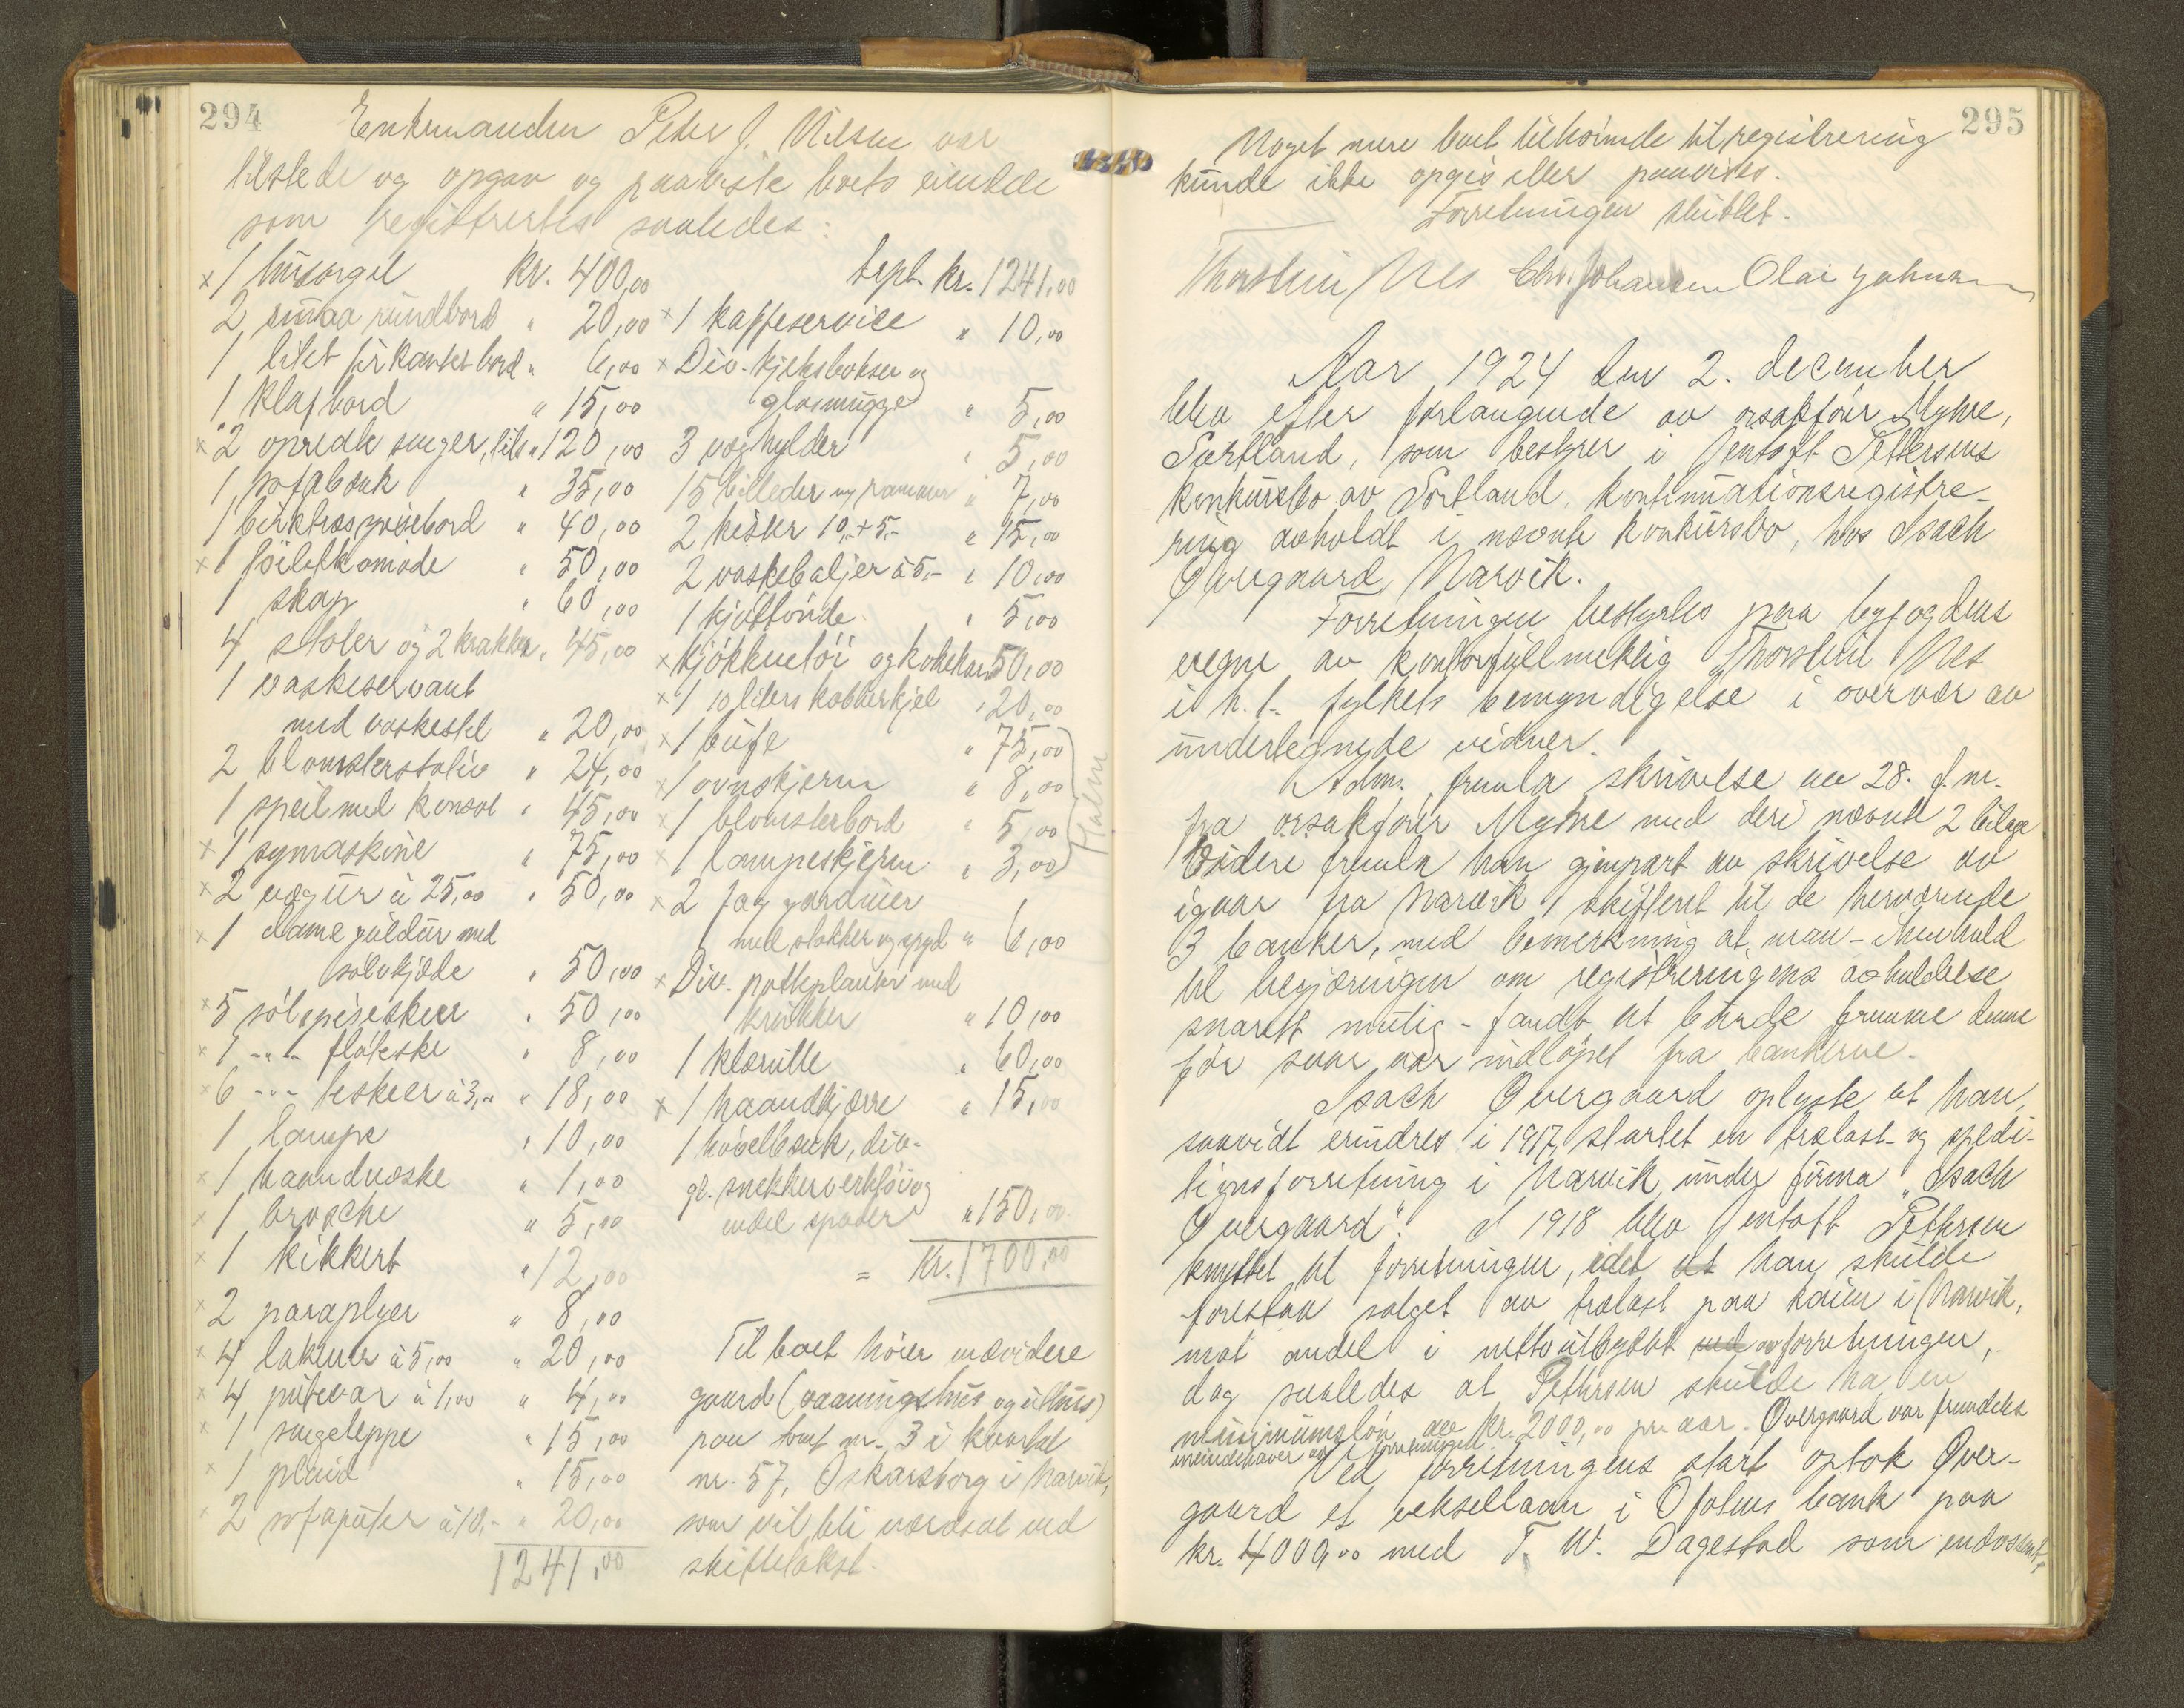 294
Enkemanden Peter J. Nilsen var
tilstede og opgav og paaviste boets eiendele
som registrertes saaledes:
x 1 husorgel Kr. 400,00
2 smaa rundbord " 20,00
1 litet firkantet bord " 6,00
1 klafbord " 15,00
x 2 opredte senger, tils. " 120,00
1 sofabænk " 35,00
1 birktræs spisebord " 40,00
x 1 toiletkomode " 50,00
1 skap " 60,00
4 stoler og 2 krakker " 45,00
1 vaskeservant
med vaskestel " 20,00
2 blomsterstativ " 24,00
1 speil med konsol " 45,00
x 1 symaskine " 75,00
x 2 vægur à 25,00 " 50,00
x 1 dame guldur med
sølvkjæde " 50,00
x 5 sølvspiseskeer " 50,00
x 1 -"- fløteske " 8,00
x 6 -"- teskeer à 3,- " 18,00
1 lampe " 10,00
x 1 haandvæske " 1,00
x 1 brosche " 5,00
x 1 kikkert " 12,00
x 2 paraplyer " 8,00
x 4 lakener à 5,00 " 20,00
x 4 putevar à 1,00 " 4,00
x 1 sengeteppe " 15,00
x 1 plaid " 15,00
x 2 sofaputer à 10,- " 20,00
1241,00
Trpt. kr. 1241,00
x 1 kaffeservice " 10,00
x Div. kjeksbokser og
glasmugge " 5,00
3 væghylder " 5,00
15 billeder og rammer " 7,00
2 kister 10,- + 5,- " 15,00
2 vaskebaljer à 5,- " 10,00
1 kjøttønde " 5,00
x Kjøkkentøi og kokekar " 50,00
x 1 10 liters kobberkjel " 20,00
x 1 bufe " 75,00
x 1 ovnskjerm " 8,00
x 1 blomsterbord " 5,00
x 1 lampeskjerm " 3,00
x 2 fag gardiner
med stokker og spyd " 6,00
x Div. potteplanter med
krukker " 10,00
1 klærulle " 60,00
x 1 haandkjærre " 15,00
1 høvelbænk, div.
gl. snekkerverktøi og
endel spader " 150,00
= Kr. 1700,00
Til boet hører endvidere
gaard (vaaningshus og uthus)
paa tomt nr. 3 i kvartal
nr. 57, Oskarsborg i Narvik,
som vil bli værdsat ved
skiftetakst.
295
Noget mere boet tilhørende til registrering
kunde ikke opgis eller paavises.
Forretningen sluttet.
Thorstein Nes Chr. Johansen Olai Johnsen
Aar 1924 den 2. december
blev efter forlangende av orsakfører Myhre,
Sortland, som bestyrer i Jentoft Pettersens
konkursbo av Sortland, kontinuationsregistre-
ring avholdt i nævnte konkursbo, hos Isach
Overgaard, Narvik.
Forretningen bestyrtes paa byfogdens
vegne av kontorfuldmektig Thorstein Nes
i h. t. fylkets bemyndigelse i overvær av
undertegnede vidner.
Adm. fremla skrivelse av 28. f.m.
fra orsakfører Myhre med deri nævnte 2 bilage
Videre fremla han gjenpart av skrivelse av
igaar fra Narvik skifteret til de herværende
3 banker, med bemerkning at man - i henhold
til begjæringen om registreringens avholdelse
snarest mulig - fandt at burde fremme denne
før svar var indløpet fra bankerne.
Isach Overgaard oplyste at han,
saavidt erindres i 1917, startet en trælast- og spedi-
tionsforretning i Narvik under firma "Isach
Overgaard". I 1918 blev Jentoft Pettersen
knyttet til forretningen, idet at han skulde
forestaa salget av trælast paa kaien i Narvik,
mot andel i nettoutbyttet ved av forretningen,
dog saaledes at Pettersen skulde ha en
minimumsløn av kr. 2000,00 pr. aar. Overgaard var fremdeles
eneindehaver av forretningen.
Ved forretningens start optok Over-
gaard et veksellaan i Ofotens bank paa
kr. 4000,00 med T. W. Dagestad som endossent,
Halm